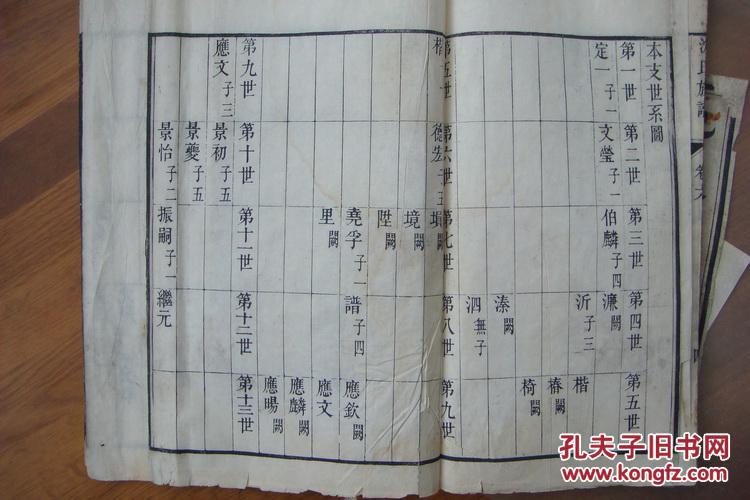 氏族譜
卷六
本支世系圖
第一世 第二世 第三世 第四世 第五世
定一 子一 文瑩 子一 伯麟 子四 濂 闕
沂 子三 楷
椿 闕
椅 闕
溱 闕
泗 無子
第五世 第六世 第七世 第八世 第九世
楷 德宏 子五 垻 闕
境 闕
陞 闕
堯孚 子一 譜 子四 應欽 闕
里 闕 應文
應麟 闕
應暘 闕
第九世 第十世 第十一世 第十二世 第十三世
應文 子三 景初 子五
景夔 子五
景怡 子二 振嗣 子一 繼元
孔夫子旧书网
www.kongfz.com